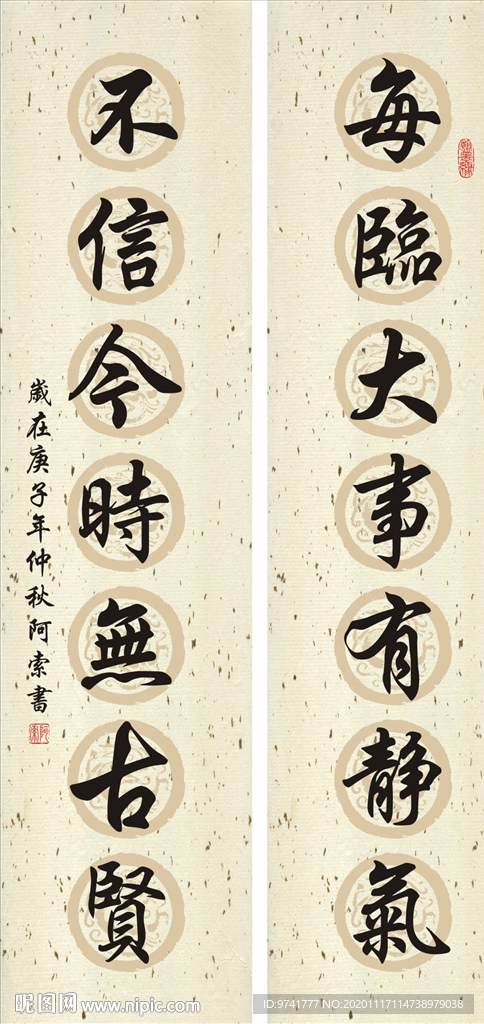 每臨大事有静氣
不信今時無古賢
歲在庚子年仲秋阿索書
昵图网 www.nipic.com
ID:9741777 NO:20201117114738979038